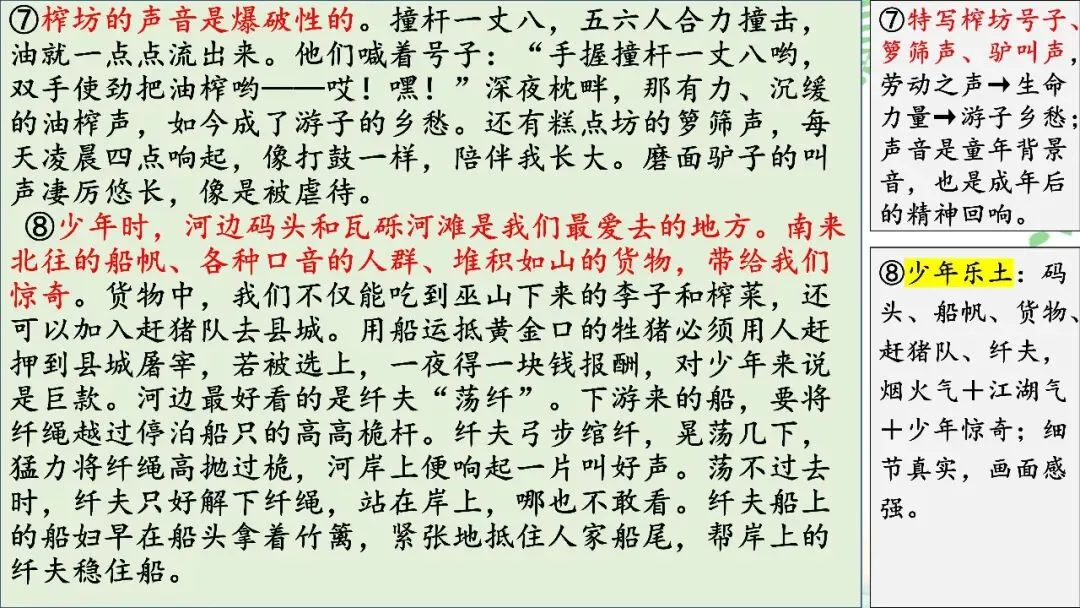 ⑦榨坊的声音是爆破性的。撞杆一丈八，五六人合力撞击，
油就一点点流出来。他们喊着号子：“手握撞杆一丈八哟，
双手使劲把油榨哟——哎！嘿！”深夜枕畔，那有力、沉缓
的油榨声，如今成了游子的乡愁。还有糕点坊的箩筛声，每
天凌晨四点响起，像打鼓一样，陪伴我长大。磨面驴子的叫
声凄厉悠长，像是被虐待。
⑧少年时，河边码头和瓦砾河滩是我们最爱去的地方。南来
北往的船帆、各种口音的人群、堆积如山的货物，带给我们
惊奇。货物中，我们不仅能吃到巫山下来的李子和榨菜，还
可以加入赶猪队去县城。用船运抵黄金口的牲猪必须用人赶
押到县城屠宰，若被选上，一夜得一块钱报酬，对少年来说
是巨款。河边最好看的是纤夫“荡纤”。下游来的船，要将
纤绳越过停泊船只的高高桅杆。纤夫弓步绾纤，晃荡几下，
猛力将纤绳高抛过桅，河岸上便响起一片叫好声。荡不过去
时，纤夫只好解下纤绳，站在岸上，哪也不敢看。纤夫船上
的船妇早在船头拿着竹篙，紧张地抵住人家船尾，帮岸上的
纤夫稳住船。
⑦特写榨坊号子、
箩筛声、驴叫声，
劳动之声→生命
力量→游子乡愁；
声音是童年背景
音，也是成年后
的精神回响。
⑧少年乐土：码
头、船帆、货物、
赶猪队、纤夫，
烟火气＋江湖气
＋少年惊奇；细
节真实，画面感
强。